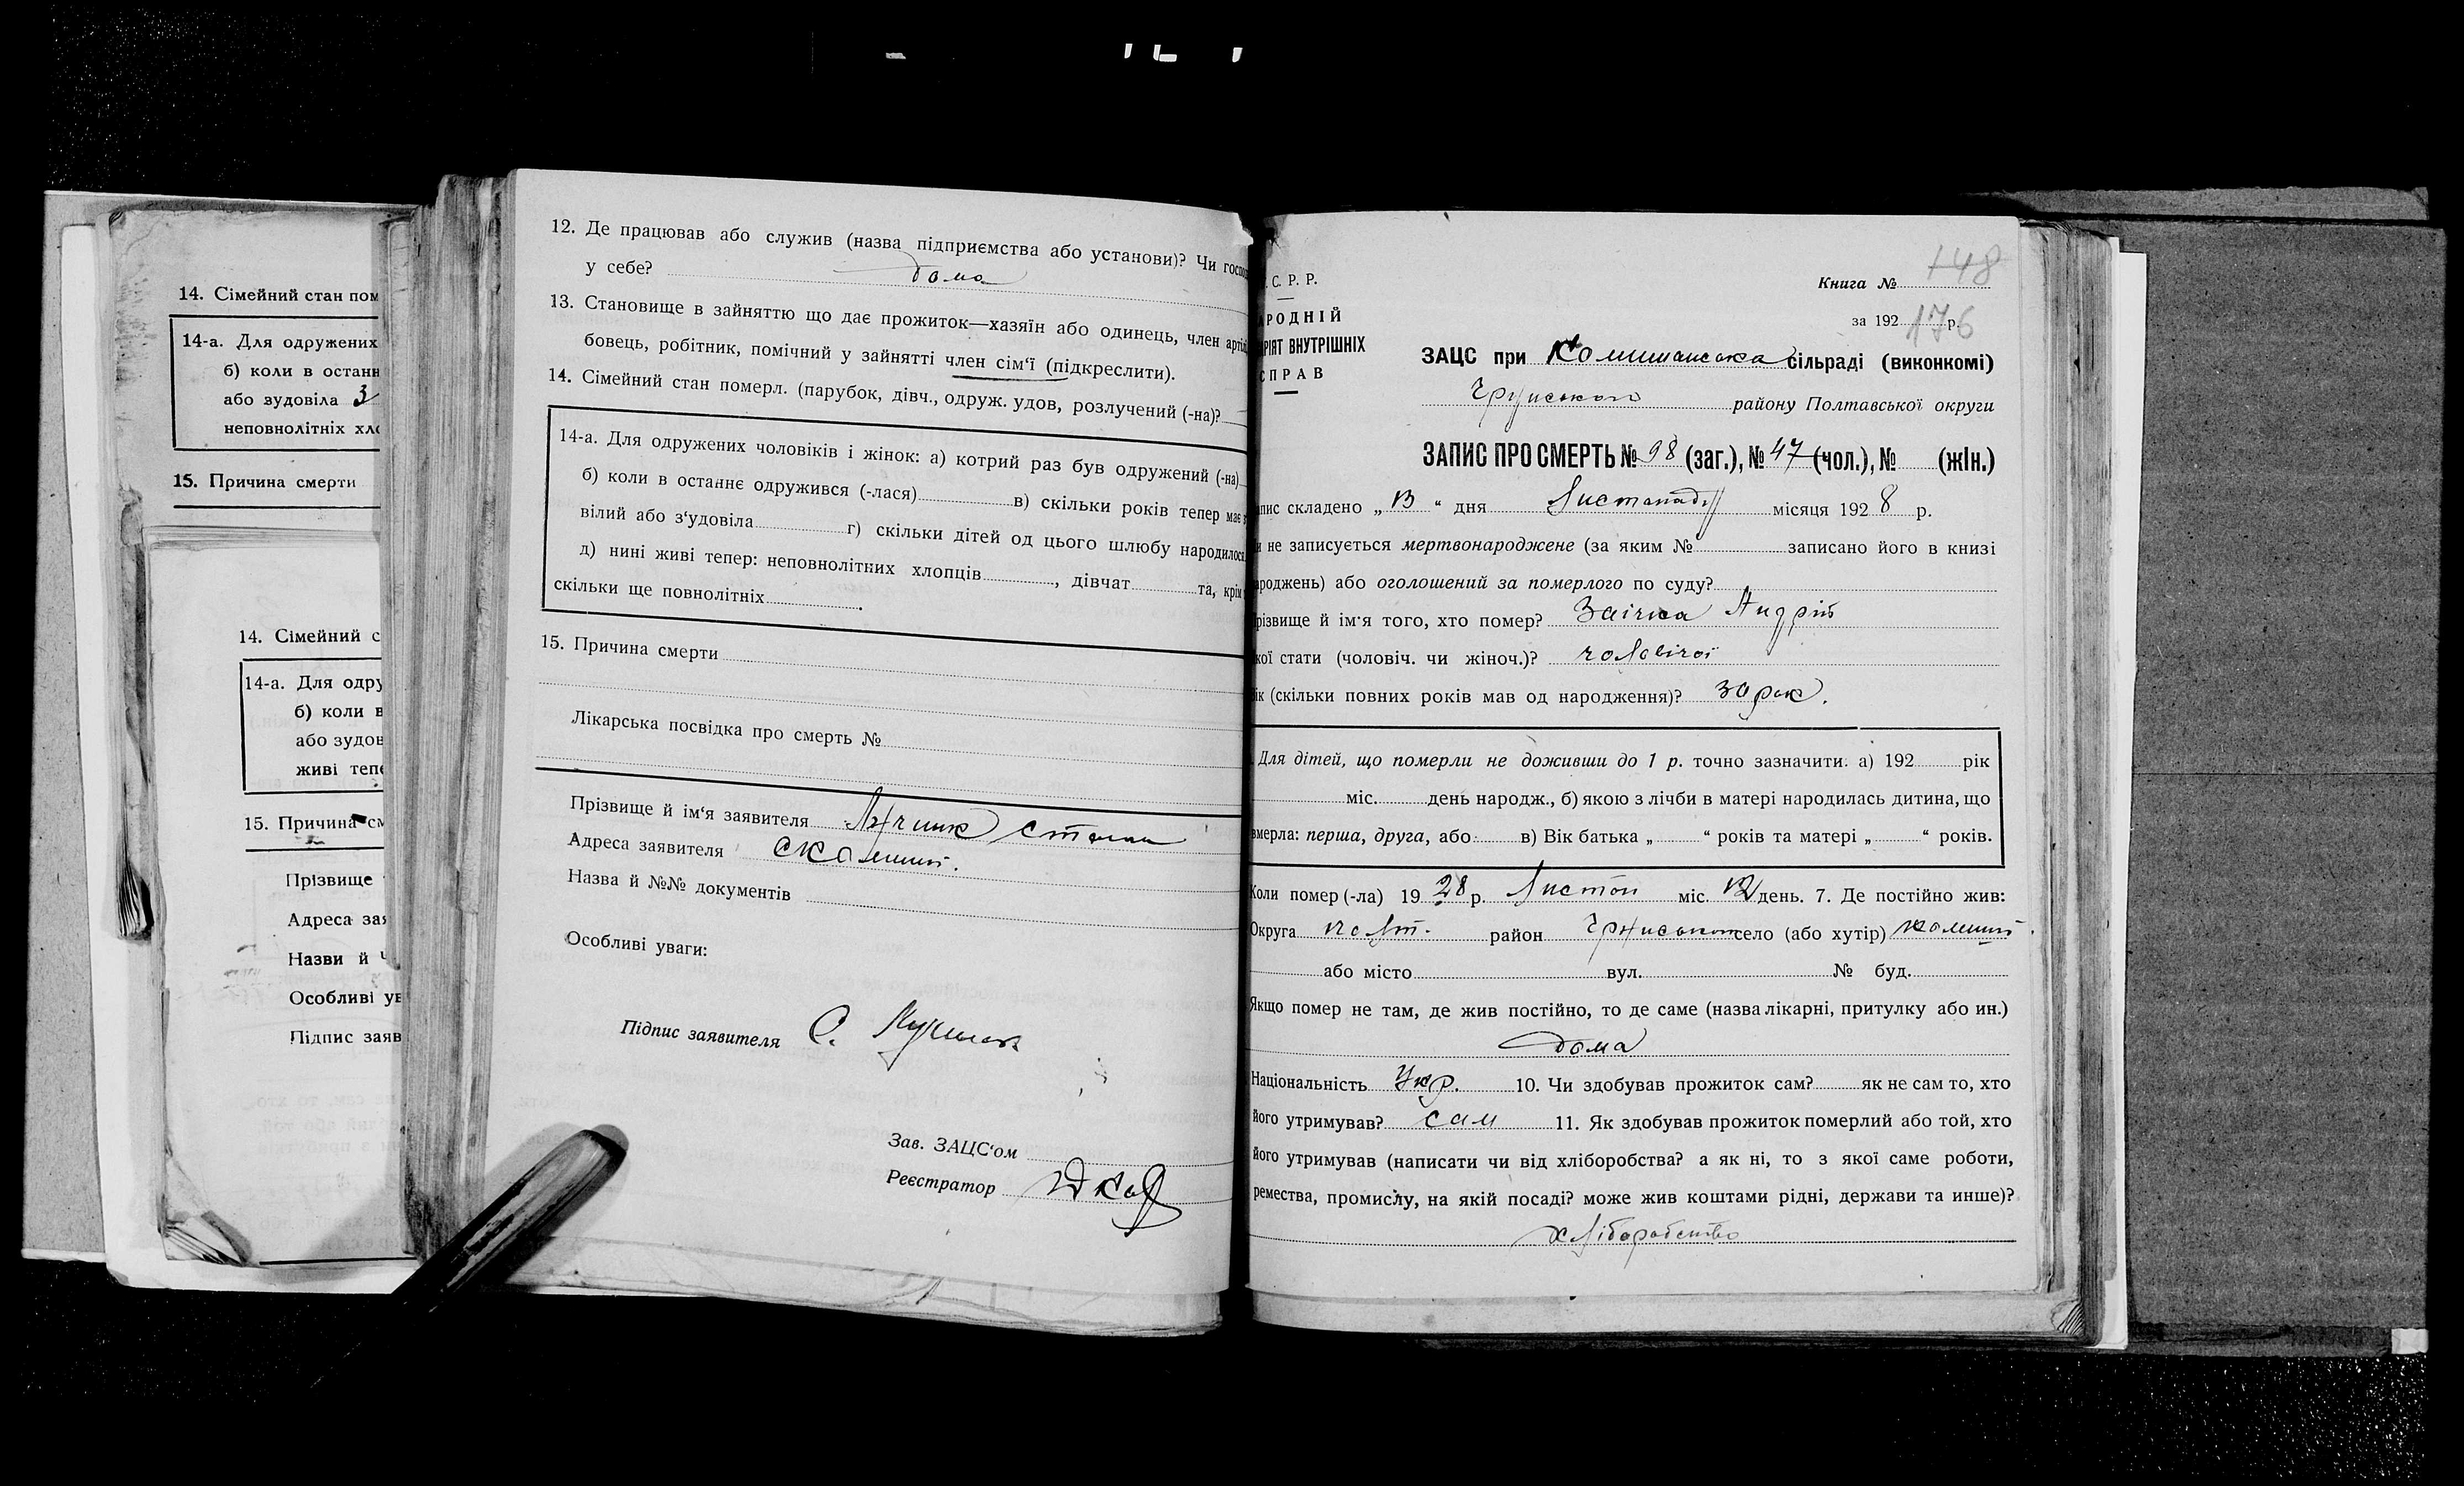 14. Сімейний стан пом
14-а. Для одружених
б) коли в останн
або зудовіла 3
неповнолітніх хло
15. Причина смерти
14. Сімейний с
14-а. Для одру
б) коли в
або зудов
живі тепе
15. Причина см
Прізвище
Адреса зая
Назви й
Особливі ув
Підпис заяв
12. Де працював або служив (назва підприємства або установи)? Чи госпо
у себе? дома
13. Становище в зайняттю що дає прожиток—хазяїн або одинець, член артіл
бовець, робітник, помічний у зайнятті член сім‘ї (підкреслити).
14. Сімейний стан померл. (парубок, дівч., одруж. удов, розлучений (-на)?
14-а. Для одружених чоловіків і жінок: а) котрий раз був одружений (-на)
б) коли в останнє одружився (-лася) в) скільки років тепер має
вілий або з‘удовіла г) скільки дітей од цього шлюбу народилося
д) нині живі тепер: неповнолітних хлопців , дівчат та, крім
скільки ще повнолітніх .
15. Причина смерти
Лікарська посвідка про смерть №
Прізвище й ім‘я заявителя
Адреса заявителя
Назва й №№ документів
Особливі уваги:
Підпис заявителя С.
Зав. ЗАЦС‘ом
Реєстратор
.С. Р. Р.
АРОДНІЙ
РІЯТ ВНУТРІШНІХ
СПРАВ
148
Книга №
176
за 192 р.
ЗАЦС при сільраді (виконкомі)
району Полтавської округи
ЗАПИС ПРО СМЕРТЬ № 98 (заг.), № 47 (чол.), № (жін.)
апис складено „13“ дня Листопаду місяця 1928 р.
и не записується мертвонароджене (за яким № записано його в книзі
ароджень) або оголошений за померлого по суду?
різвище й ім‘я того, хто помер? Заічка Андрій
кої стати (чоловіч. чи жіноч.)? чоловічої
ік (скільки повних років мав од народження)? 30 рок.
Для дітей, що померли не доживши до 1 р. точно зазначити: а) 192 рік
міс. день народж., б) якою з лічби в матері народилась дитина, що
вмерла: перша, друга, або в) Вік батька „ “ років та матері „ “ років.
Коли помер (-ла) 1928 р. Листоп міс. 12 день. 7. Де постійно жив:
Округа Полт. район село (або хутір)
або місто вул. № буд.
Якщо помер не там, де жив постійно, то де саме (назва лікарні, притулку або ин.)
дома
Національність Укр. 10. Чи здобував прожиток сам? як не сам то, хто
його утримував? сам 11. Як здобував прожиток померлий або той, хто
його утримував (написати чи від хліборобства? а як ні, то з якої саме роботи,
ремества, промислу, на якій посаді? може жив коштами рідні, держави та инше)?
хліборобство